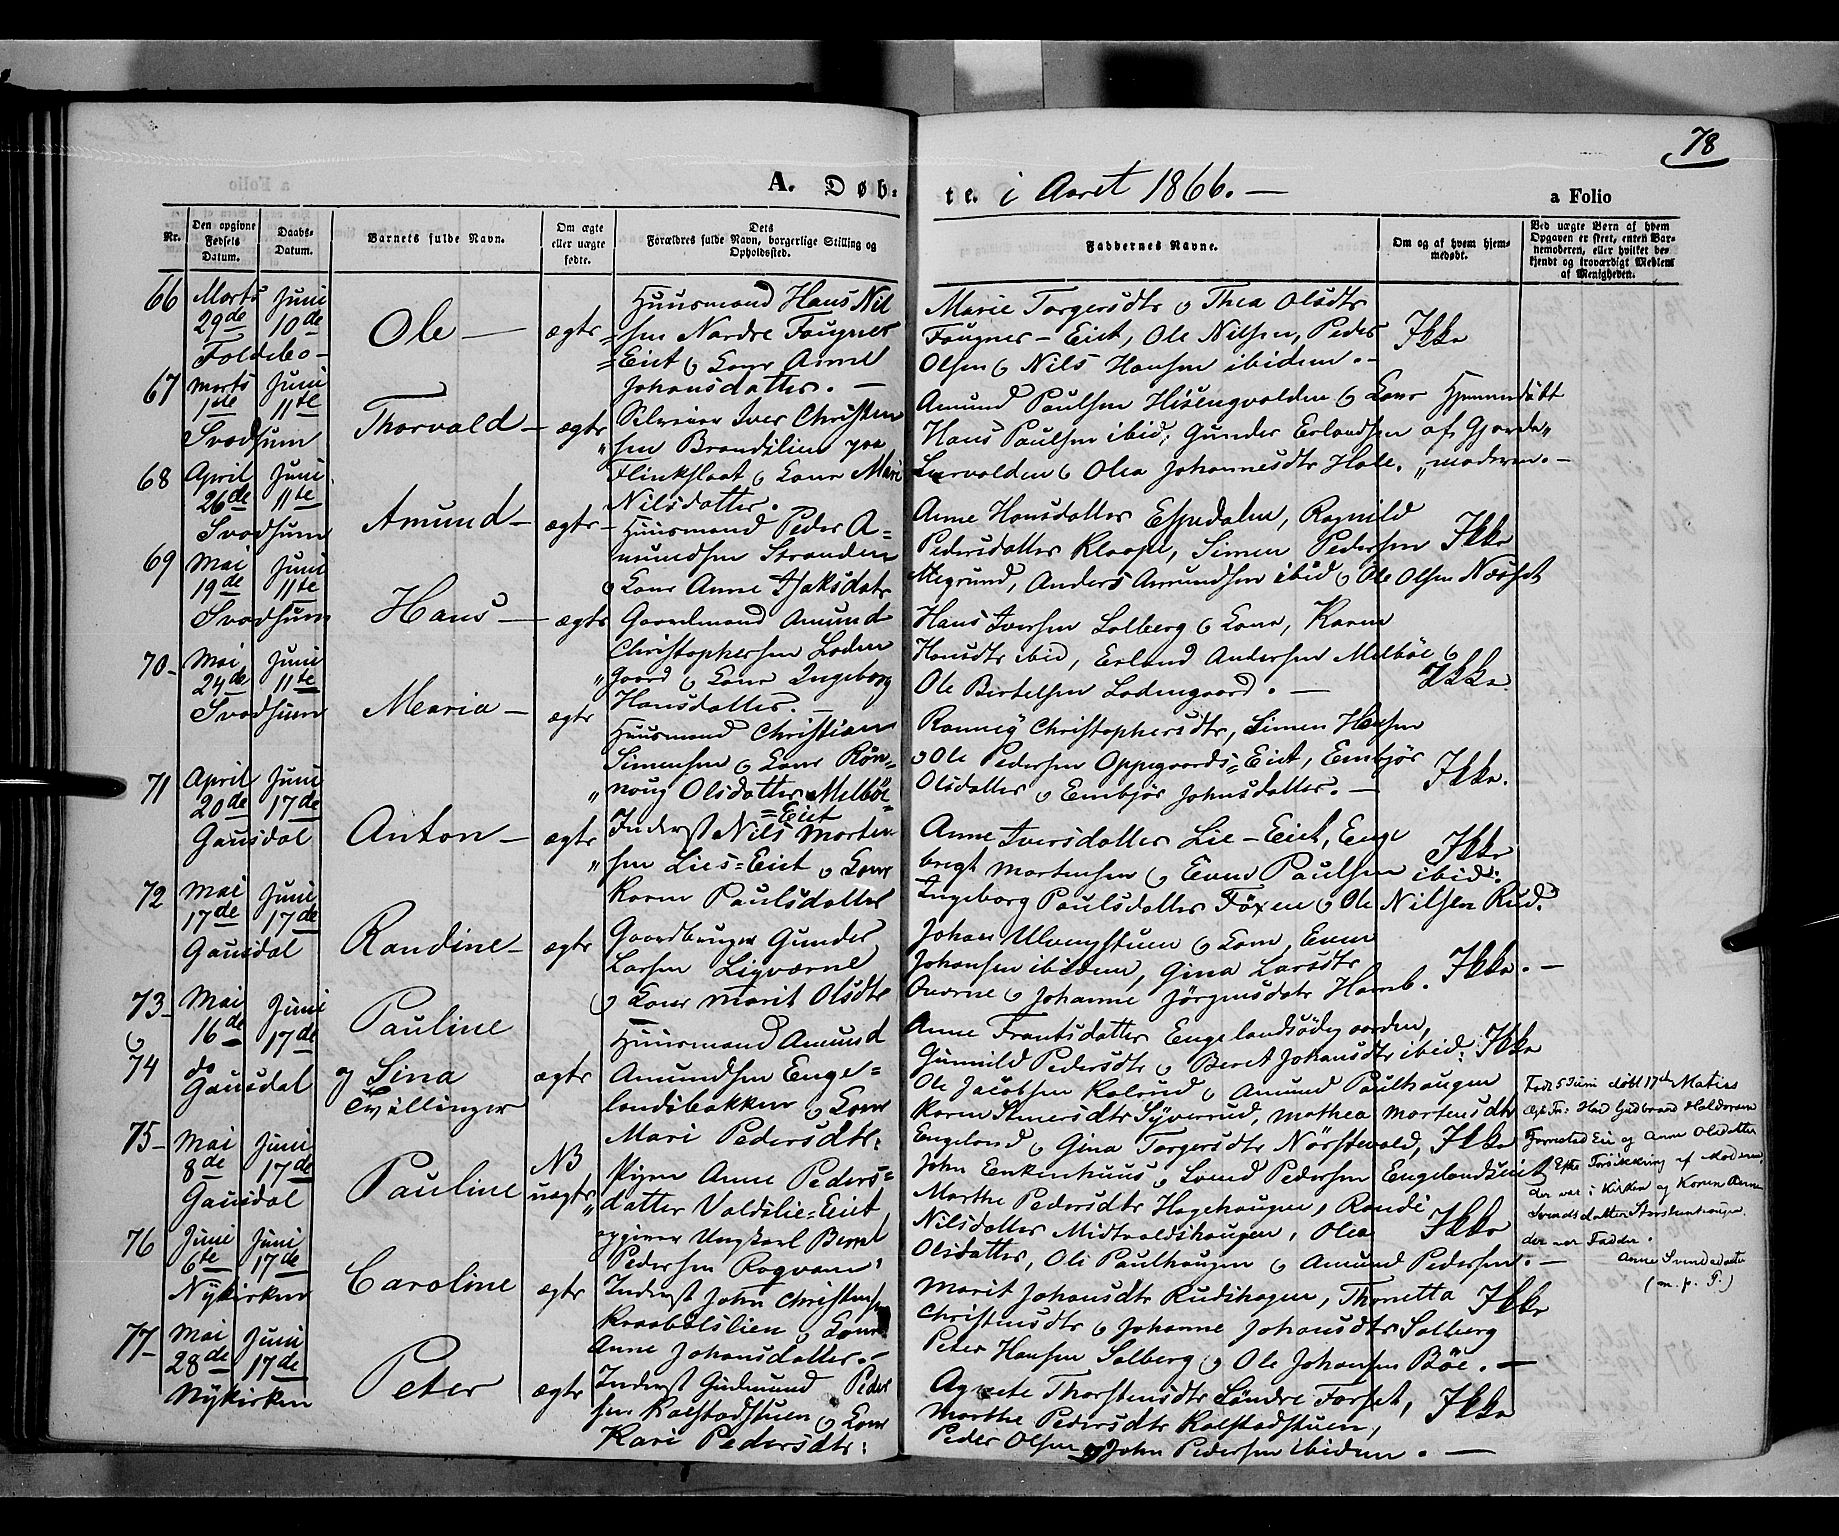 78
A. Døb-
te. i Aaret 1866. —
a Folio
Nr.
Den opgivne Fødsels Datum.
Daabs-Datum.
Barnets fulde Navn.
Om ægte eller uægte fødte.
Dets Forældres fulde Navn, borgerlige Stilling og Opholdssted.
Faddernes Navne.
Om og af hvem hjemmedøbt.
Ved uægte Børn af hvem Opgaven er skeet, enten Barnemoderen, eller hvilket bekjendt og troværdigt Medlem af Menigheden.
66 Marts 29de Juni 10de
Foldebo —
Ole —
ægte
Huusmand Hans Nil
=sen Nordre Fougner
=Eiet & Kone Anne
Johansdatter. —
Marie Torgersdtr & Thea Olsdtr
Fougner-Eiet, Ole Nilsen, Peder
Olsen & Nils Hansen ibidem. —
Ikke
67 Marts 1ste Juni 11te
Svadsum
Thorvald —
ægte
Iver Christen
"sen Brandslien paa
Flinkslaat & Kone Mari
Nilsdatter.
Amund Paulsen Hisengvolden & Kone
Hans Paulsen ibid, Gunder Erlandsen
Lurvolden & Olea Johannesdtr Hole.
Hjemmedøbt
af Gjorde„
„moderen. —
68 April 26de Juni 11te
Svadsum
Amund —
ægte —
Huusmand Peder A=
mundsen Stranden
& Kone Anne Isaksdatr
Anne Hansdatter Espedalen, Ragnild
Pedersdatter Klaape, Simen Pedersen
Megrund, Anders Amundsen ibid & Ole Olsen Næsset
Ikke
69 Mai 19de Juni 11te
Svadsum
Hans —
ægte
Gaardmand Amund
Christophersen Loden
"gaard & Kone Ingeborg
Hansdatter. —
Hans Iversen Solberg & Kone, Karen
Hansdtr ibid, Erland Andersen Melbøe &
Ole Bertelsen Lodengaard. —
Ikke
70 — Mai 24de Juni 11te
Svadsum
Maria —
ægte
Huusmand Christian
Simensen & Kone Røn=
"noug Olsdatter Melbøe=
=Eiet
Ronneg Christophersdtr, Simen Hansen
& Ole Pedersen Oppegaards=Eiet, Embjør
Olsdatter & Embjør Johnsdatter. —
Ikke.
71 April 20de Juni 17de
Gausdal
Anton —
ægte
Inderst Nils Morten
"sen Lies=Eiet & Kone
Karen Paulsdatter
Anne Iversdatter Lie-Eiet, Enge
bregt Mortensen & Even Paulsen ibid:
Ingeborg Paulsdatter Foxen & Ole Nilsen Rud.
Ikke
72 Mai 17de Juni 17de
Gausdal
Randine —
ægte
Gaardbruger Gunder
Larsen Ligværne
& Kone Marit Olsdtr
Johan Ulvengstuen & Kone, Even
Johansen ibidem, Gina Larsdtr
Qværne & Johanne Jørgensdatr Homb.
Ikke. —
73 — Mai 16de Juni 17de
&
74 do
Gausdal
Pauline
og Sina
Tvillinger
ægte
Huusmand Amund
Amundsen Enge=
landsbakken & Kone
Mari Pedersdtr:
Anne Frantsdatter Engelandsødegaarden,
Gunnild Pedersdtr & Beret Johansdtr ibid:
Ole Jacobsen Kolsrud & Amund Paulhaugen
Karen Simersdtr Syverrud, Mathea Mortensdtr
Engeland & Gina Torgersdtr Nørstevold,
John Enkenhuus & Svend Pedersen Engelandseiet
Ikke
Ikke
75 — Mai 8de Juni 17de
Gausdal
Pauline
NB
uægte
Pigen Anne Peders=
"datter Voldslie=Eiet
opgiver Ungkarl Bernt
Pedersen Rogvam.
Marthe Pedersdtr Hagehaugen, Randi
Nilsdatter Midtvoldshaugen, Olea
Olsdatter, Ole Paulhaugen & Amund Pedersen. —
Ikke
Født 5 Juni døbt 17de Matias
Fornstad Eie og Anne Olsdatter
Efter Forsikkring af Moderen,
der var i Kirken og Karen
Svendsdatter
der var Fadder.
(m. p. P.)
76 Juni 6te Juni 17de
Nykirken
Caroline
ægte
Inderst John Christensen
Kraabølslien & Kone
Anne Johansdatter. —
Marit Johansdtr Rudshagen, Thonetta
Christensdtr & Johanne Johansdtr Solberg
Peter Hansen Solberg & Ole Johansen Bøe. —
Ikke
77 — Mai 28de Juni 17de
Nykirken
Peter
ægte
Inderst Gudmund Peder
sen Kalstadstuen & Kone
Kari Pedersdtr:
Agnete Thorstensdtr Søndre Forset,
Marthe Pedersdtr Kalstadstuen,
Peder Olsen & John Pedersen ibidem. —
Ikke